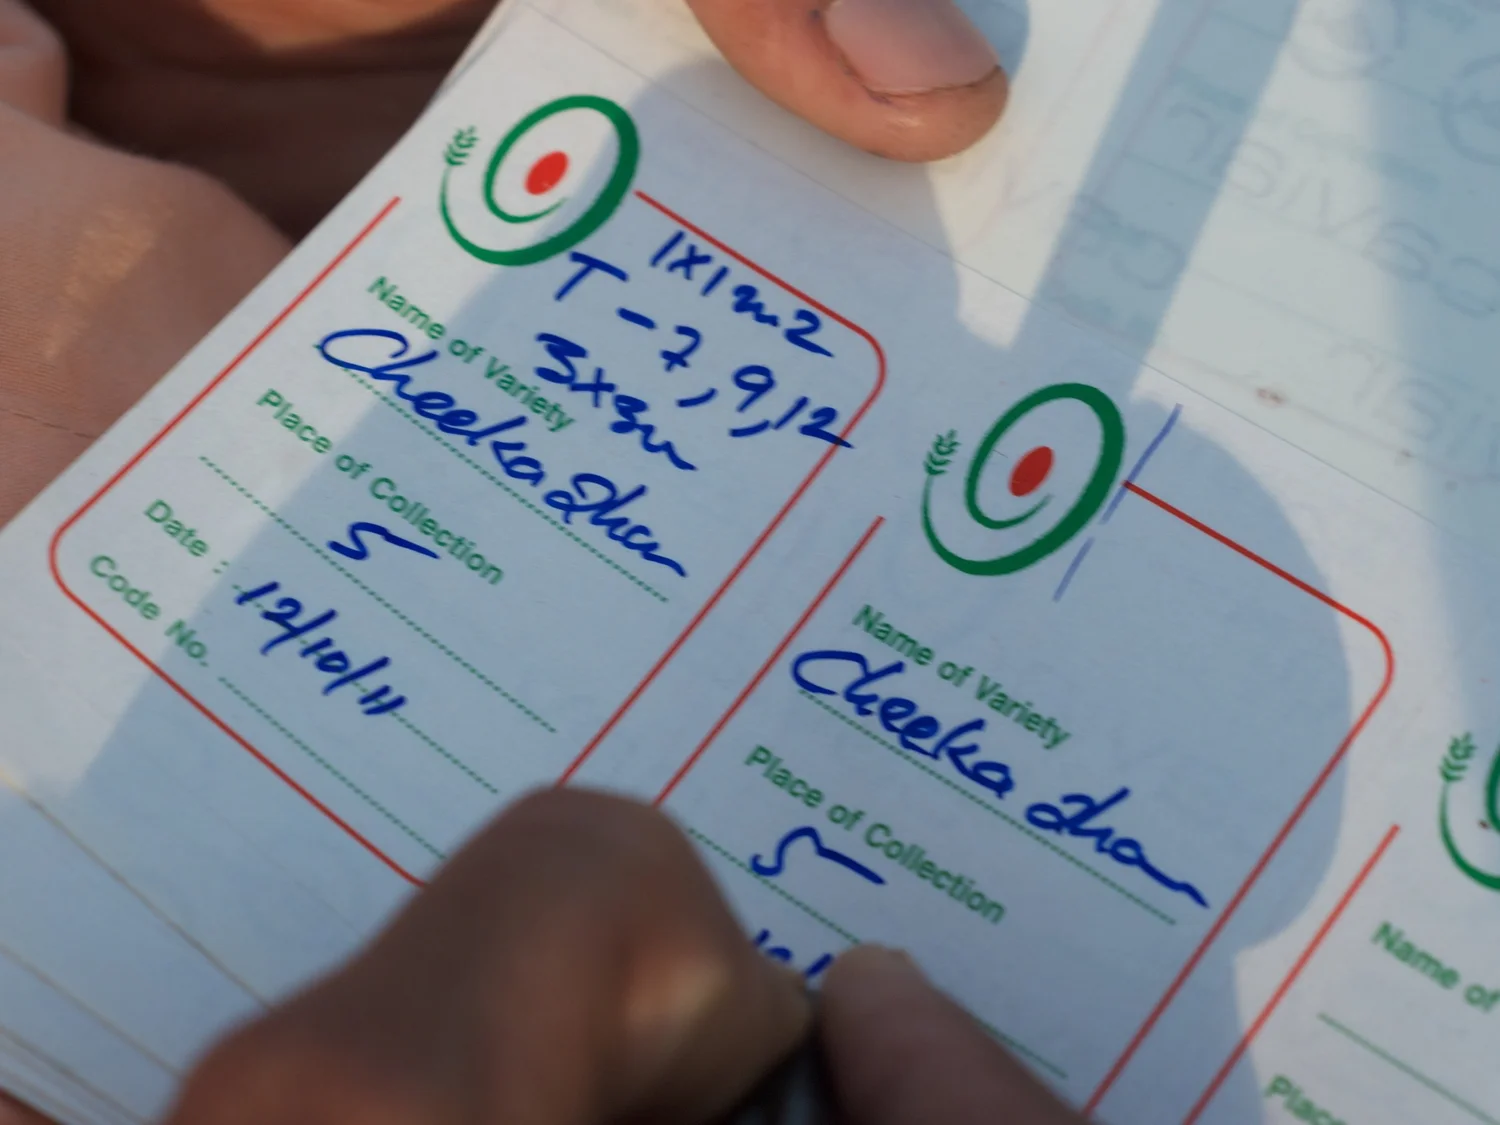 1x1m2
T - 7, 9, 12
3x3m
Name of Variety
Cheeka dhan
Place of Collection
5
Date :
12/10/11
Code No.
Name of Variety
Cheeka dhan
Place of Collection
5
Name of
Place